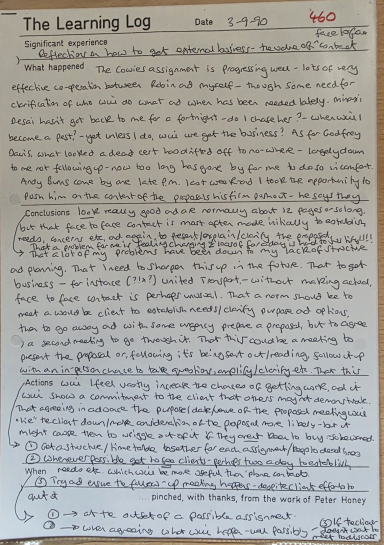 The Learning Log Date 3-9-90 460
Significant experience face to face
Reflections on how to get external business - the value of contact
What happened The Cowies assignment is progressing well - lots of very
effective co-operation between Robin and myself - though some need for
clarification of who will do what and when has been needed lately.
Desai hasn't got back to me for a fortnight - do I chase her? - when will I
become a pest? - yet unless I do, will we get the business? As for Godfrey
Davis, what looked a dead cert has drifted off to no-where - largely down
to me not following up - now too long has gone by for me to do so in comfort.
Andy Burns came by one late p.m. last week and I took the opportunity to
push him on the content of the proposals his firm puts out - he says they
Conclusions look really good and are normally about 12 pages or so long,
but that face to face contact is most often made initially to establish
needs, concerns etc. and again to present/explain/clarify the proposal.
That a problem for me is feeling changing
That a lot of my problems have been down to my lack of structure
and planning. That I need to sharpen this up in the future. That to get
business - for instance (?!!?) United Transport, - without making actual,
face to face contact is perhaps unusual. That a norm should be to
meet a would be client to establish needs/clarify purpose and options,
then to go away and with some urgency prepare a proposal, but to agree
a second meeting to go through it. That this could be a meeting to
present the proposal or, following its being sent out/reading, follow it up
with an in-person chance to take questions, amplify/clarify etc. That this
Actions will I feel vastly increase the chances of getting work, and it
will show a commitment to the client that others may not demonstrate.
That agreeing in advance the purpose/date/venue of the proposal meeting will
"tie" the client down/make consideration of the proposal more likely - but it
might cause them to wriggle out of it if they aren't keen to buy
① Get a structure/time table together for each assignment/keep to deadlines
② Whenever possible get to see clients - perhaps twice a day to establish
When needs etc. which will be more useful than phone contacts
③ Try and ensure the follow-up meeting happens - despite client efforts to
quit it ...pinched, with thanks, from the work of Peter Honey
① → at the outset of a possible assignment.
② → when agreeing what will happen - well possibly ③ If the client doesn't want to meet to discuss